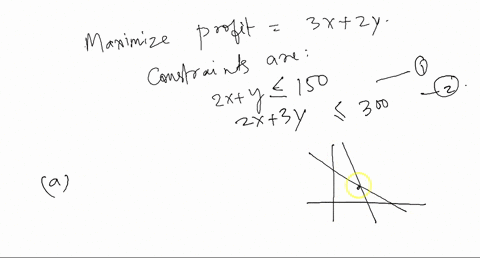 Maximize profit = 3x+2y.
Constraints are:
2x+y ≤ 150 — ①
2x+3y ≤ 300 — ②.
(a)